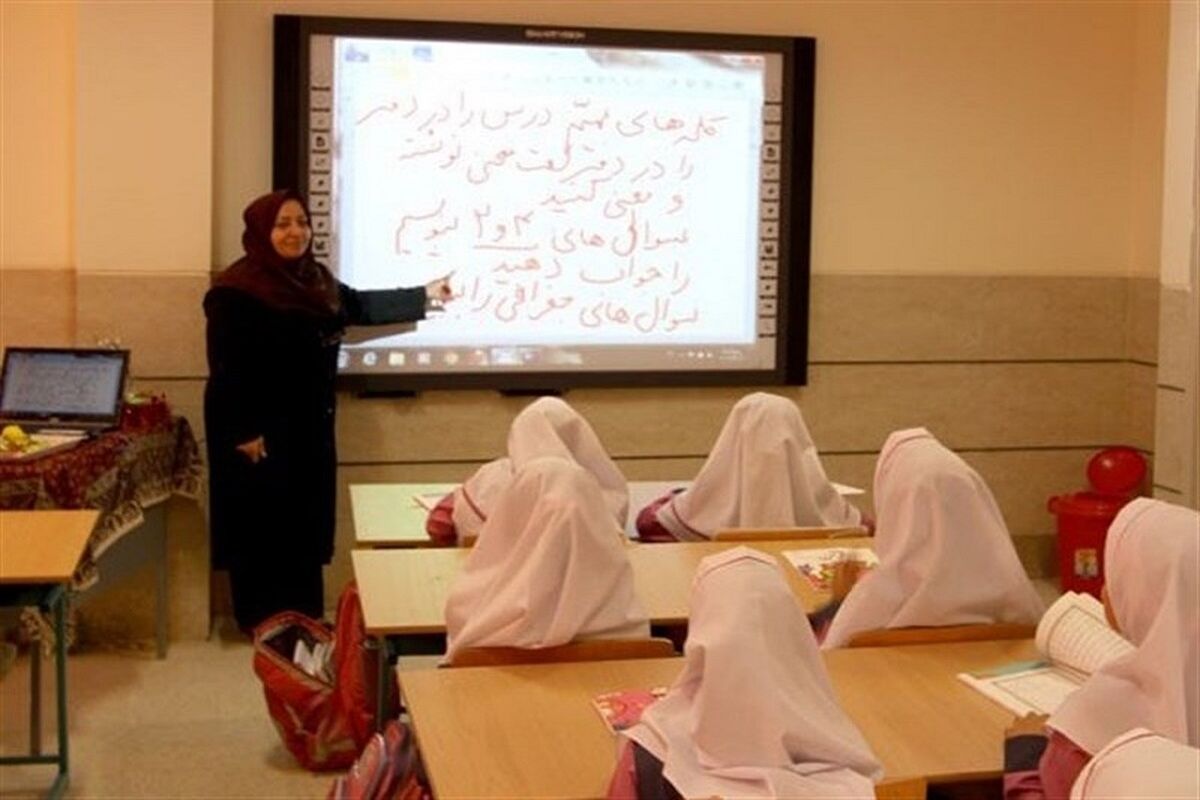 SMART VISION
کلمه های مهم درس را در دفتر
را در دفتر لغت معنی نوشته
و معنی کنید
سوال های ۲ و ۳
را جواب دهید
سوال های جغرافی را